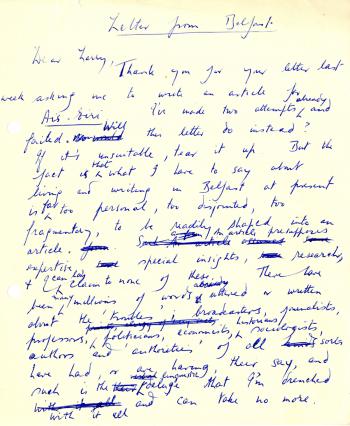 Letter from Belfast.
Dear Terry,
Thank you for your letter last
week asking me to write an article for
Ars-Eiri. I've made two attempts already and
failed. Will this letter do instead?
If it's unsuitable, tear it up But the
fact is that what I have to say about
living and writing in Belfast at present
is far too personal, too disjointed, too
fragmentary, to be readily shaped into an
article. An article presupposes
expertise special insights, research,
& I can lay claim to none of these. There have
been many millions of words uttered or written
about the 'troubles'; broadcasters, journalists,
professors, politicians, economists, historians, sociologists,
authors and authorities of all sorts
have had, or are having, their say, and
such is the linguistic deluge that I'm drenched
with it all and can take no more.